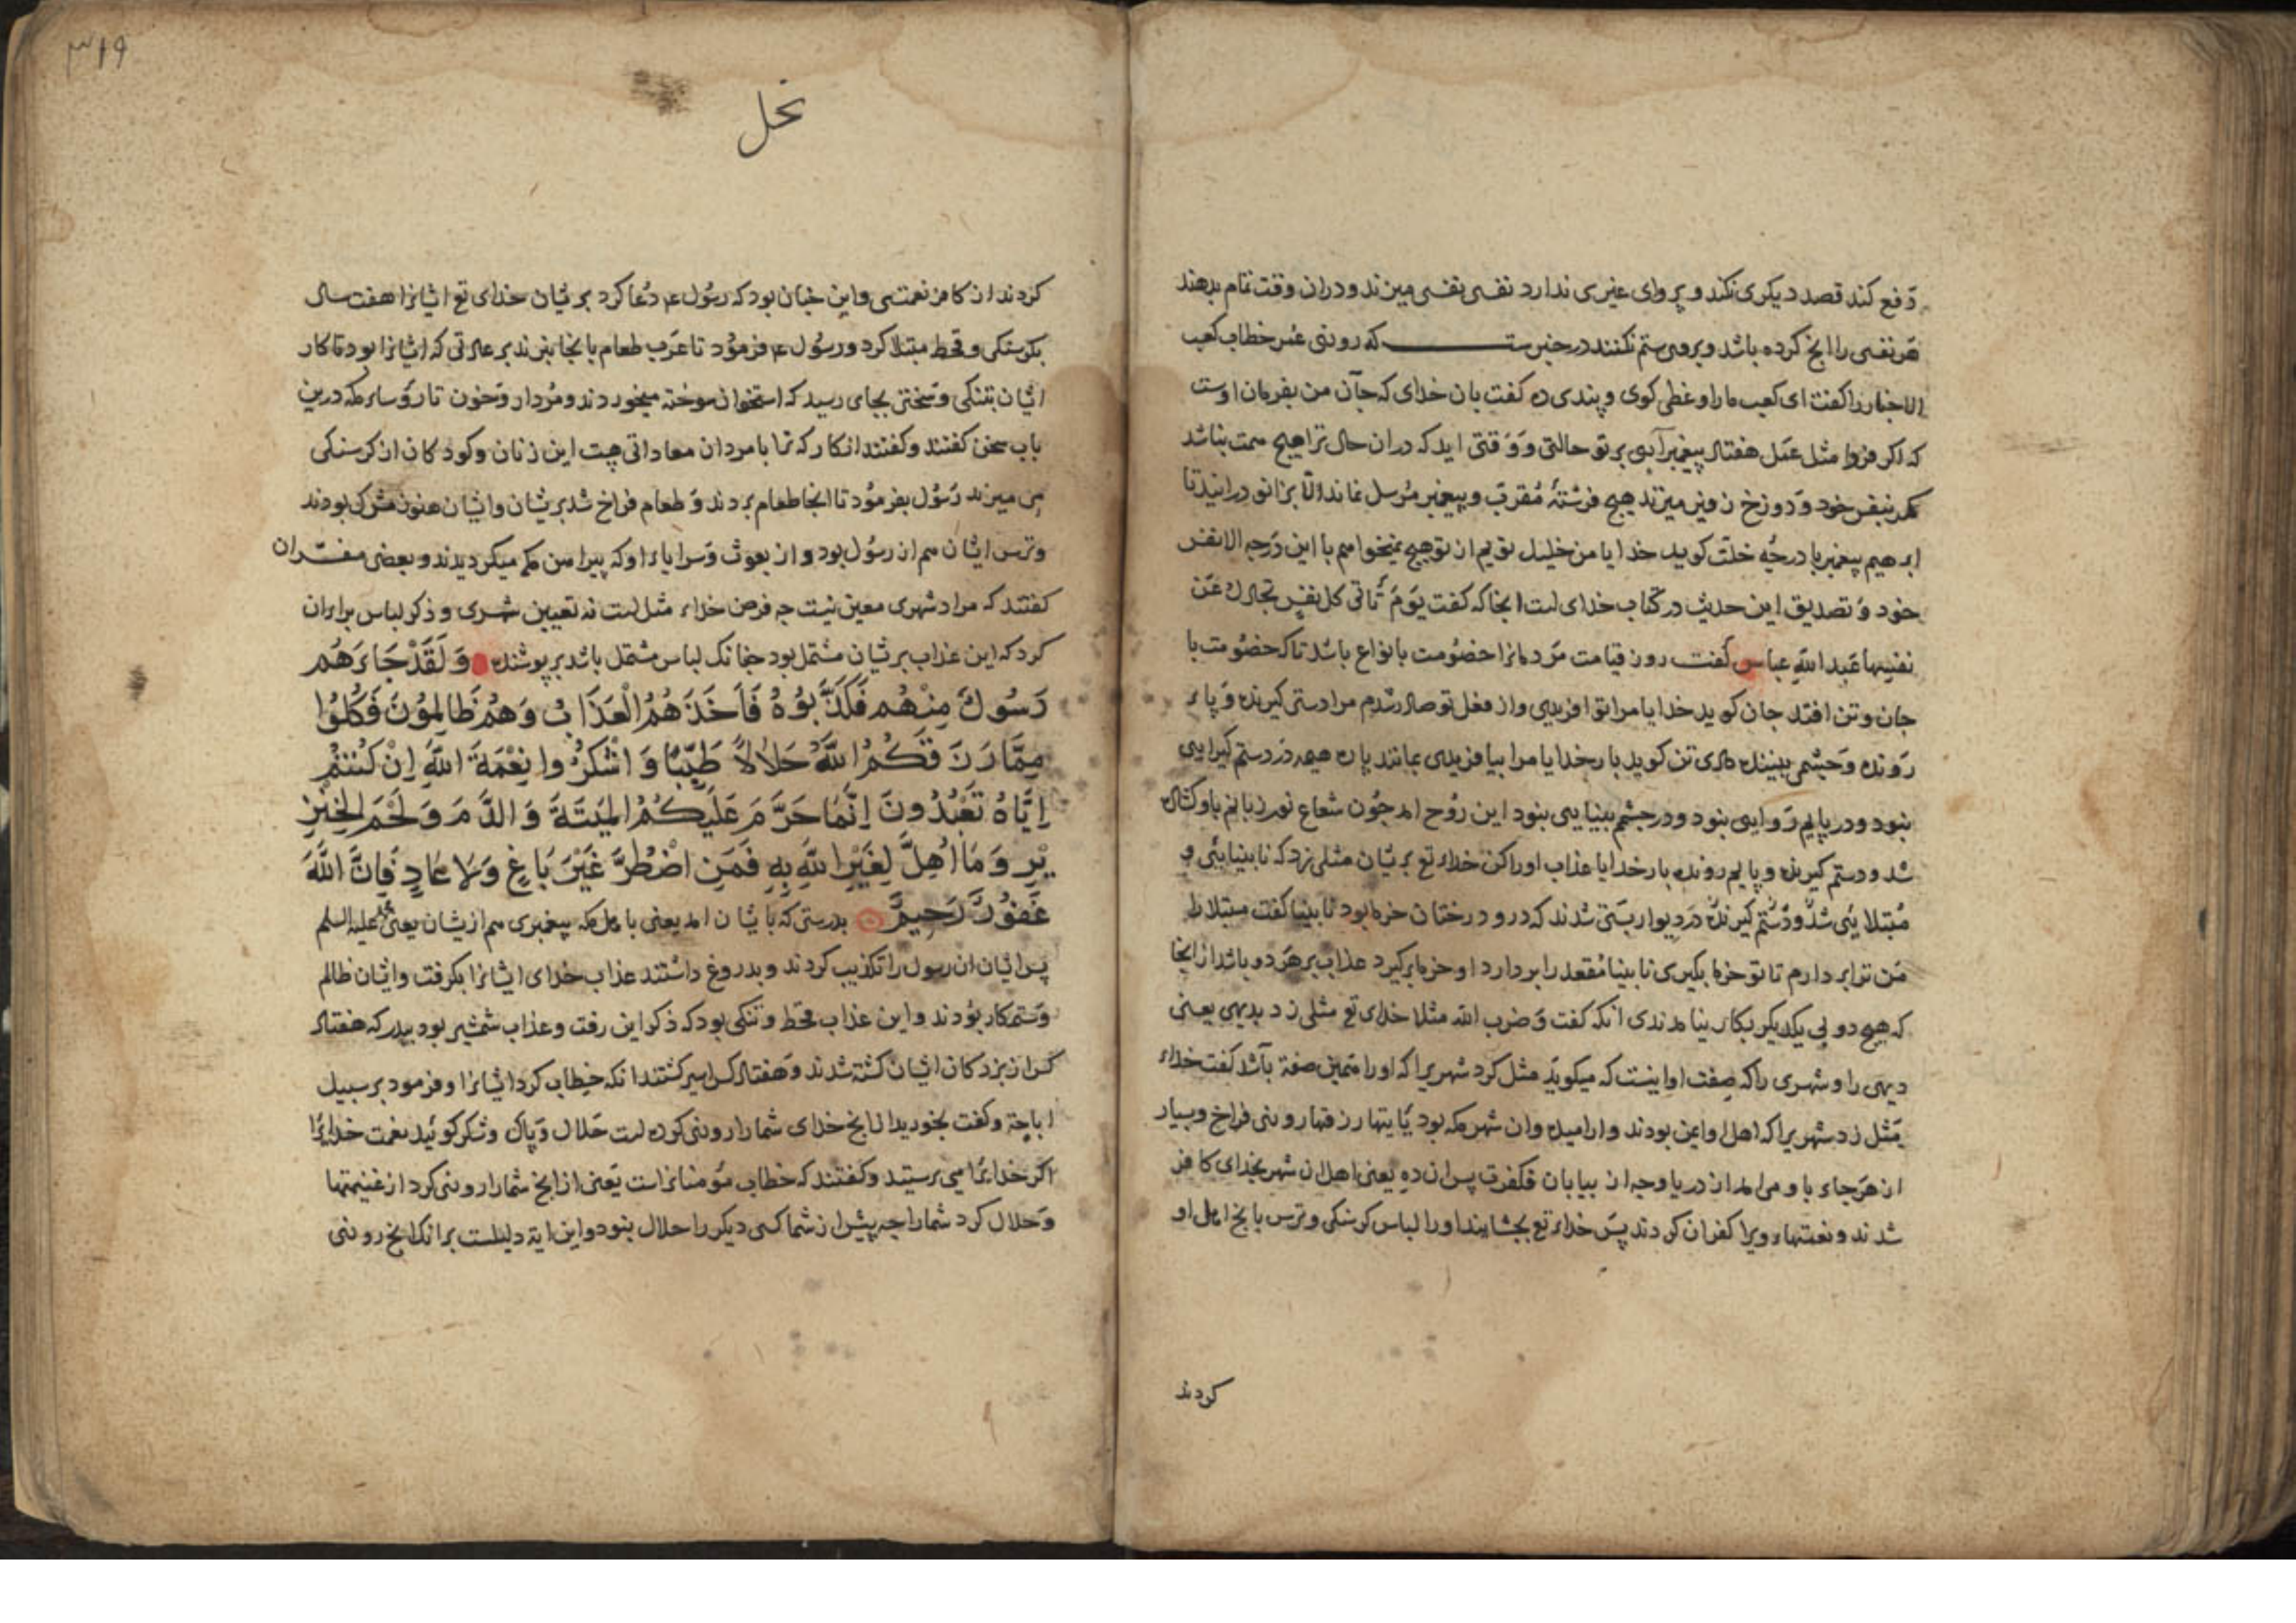 دفع كند قصد ديكرى نكند و پرواى غيرى ندارد نفسى نفسى ميزند و دران وقت تمام بدهند
هر نفسى را انج كرده باشد و بروى ستم نكنند در خبرست كه روزى عمر خطاب كعب
الاحبار را كفت اى كعب ما را وعظى كوى و پندى ده كفت بان خداى كه جان من بفرمان اوست
كه اكر فردا مثل عمل هفتاد پيغمبر آيى بر تو حالتى و وقتى ايد كه دران حال ترا هيچ همت نباشد
مكر بنفس خود و دوزخ زفيرى ميزند هيچ فرشتۀ مقرب و پيغمبر مرسل نماند الّا بزانو درايند تا
ابرهيم پيغمبر با درجۀ خلّت كويد خدايا من خليل توم از تو هيچ نميخواهم با اين درجه الا نفس
خود و تصديق اين حديث در كتاب خداى است انجا كه كفت يَوْمَ تَأتى كل نفسٍ تجادل عَن
نفسِها عبد الله عباس كفت روز قيامت مردمانرا خصومت بانواع باشد تا كه خصومت با
جان و تن افتد جان كويد خدايا مرا تو افريدى و از فعل تو صادر شدم مرا دستى كيرنده و پاى
رونده و چشمى بيننده ندادى تن كويد بار خدايا مرا بيافريدى بمانند پاره هيمه در دستم كيرايى
نبود و در پايم روايى نبود و در چشم بينايى نبود اين روح امد چون شعاع نور زبانم باو كشاده
شد و دستم كيرنده و پايم رونده بار خدايا عذاب او را كن خداى تع بريشان مثلى زد كه نابينايى و
مبتلايى شد و دستم كيرنده در ديوار بستى شدند كه درو درختان خرما بود نابينا كفت مبتلا را
من ترا بردارم تا تو خرما بكيرى نابينا مقعد را بردارد او خرما بركيرد عذاب بر هر دو باشد از انجا
كه هيچ دو بى يكديكر بكار نيامدندى انكه كفت و ضرب الله مثلا خداى تع مثلى زد بديهى يعنى
ديهى را و شهرى را كه صفت او اينست كه ميكويد مثل كرد شهريرا كه او را همين صفة باشد كفت خداى
مثل زد شهريرا كه اهل او ايمن بودند و ارميده وان شهر مكه بود يأتيها رزقها روزى فراخ و بسيار
از هر جاى باو مى امد از دريا و چه از بيابان فكفرت پس ان ده يعنى اهل ان شهر بخداى كافر
شدند و نعمتهاى ويرا كفران كردند پس خداى تع بچشانيد او را لباس كرسنكى و ترس بانچ اهل او
كردند
٣١٩
نحل
كردند از كافر نعمتى و اين چنان بود كه رسول ع دعا كرد بريشان خداى تع ايشانرا هفت سال
بكرسنكى و قحط مبتلا كرد و رسول ع فرمود تا عرب طعام بانجا نبرند بر عادتى كه ايشانرا بود تا كار
ايشان بتنكى و سختى بجاى رسيد كه استخوان سوخته ميخوردند و مردار و خون تا رؤساى مكه درين
باب سخن كفتند و كفتند انكار كه ترا با مردان معاداتى هست اين زنان و كودكان از كرسنكى
مى ميرند رسول بفرمود تا انجا طعام بردند و طعام فراخ شد بريشان و ايشان هنوز مشرك بودند
و ترس ايشان هم از رسول بود و از بعوث و سراياى او كه پيرامن مكه ميكرديدند و بعضى مفسّران
كفتند كه مراد شهرى معين نيست چه غرض خداى مثل است نه تعيين شهرى و ذكر لباس براى ان
كرد كه اين عذاب بريشان مشتمل بود چنانك لباس مشتمل باشد بر پوشنده وَلَقَدْ جَاءَهُم
رَسُولٌ مِنْهُم فَكَذَّبُوهُ فَاَخَذَهُمُ الْعَذَابُ وَهُمْ ظَالِمُونَ فَكُلُوا
مِمَّا رَزَقَكُمُ اللّهُ حَلَالاً طَيِّبًا وَاشْكُرُوا نِعْمَةَ اللّهِ اِنْ كُنْتُمْ
اِيَّاهُ تَعْبُدُونَ اِنَّمَا حَرَّمَ عَلَيْكُمُ الْمَيْتَةَ وَالدَّمَ وَلَحْمَ الْخِنْزِ
يْرِ وَمَا اُهِلَّ لِغَيْرِ اللّهِ بِهِ فَمَنِ اضْطُرَّ غَيْرَ بَاغٍ وَلَا عَادٍ فَاِنَّ اللّهَ
غَفُورٌ رَحِيمٌ بدرستى كه بايشان امد يعنى باهل مكه پيغمبرى هم ازيشان يعنى محمد عليه السلم
پس ايشان ان رسول را تكذيب كردند و بدروغ داشتند عذاب خداى ايشانرا بكرفت و ايشان ظالم
و ستمكار بودند و اين عذاب قحط و تنكى بود كه ذكر اين رفت و عذاب شمشير بود ببدر كه هفتاد
كس از بزركان ايشان كشته شدند و هفتاد كس اسير كشتند انكه خطاب كرد ايشانرا و فرمود بر سبيل
اباحة و كفت بخوريد از انچ خداى شما را روزى كرده است حلال و پاك و شكر كوئيد نعمت خدايرا
اكر خدايرا مى پرستيد و كفتند كه خطاب مؤمنانراست يعنى از انچ شما را روزى كرد از غنيمتها
و حلال كرد شما را چه پيش از شما كسى ديكر را حلال نبود و اين اية دليلست بر انك انچ روزى